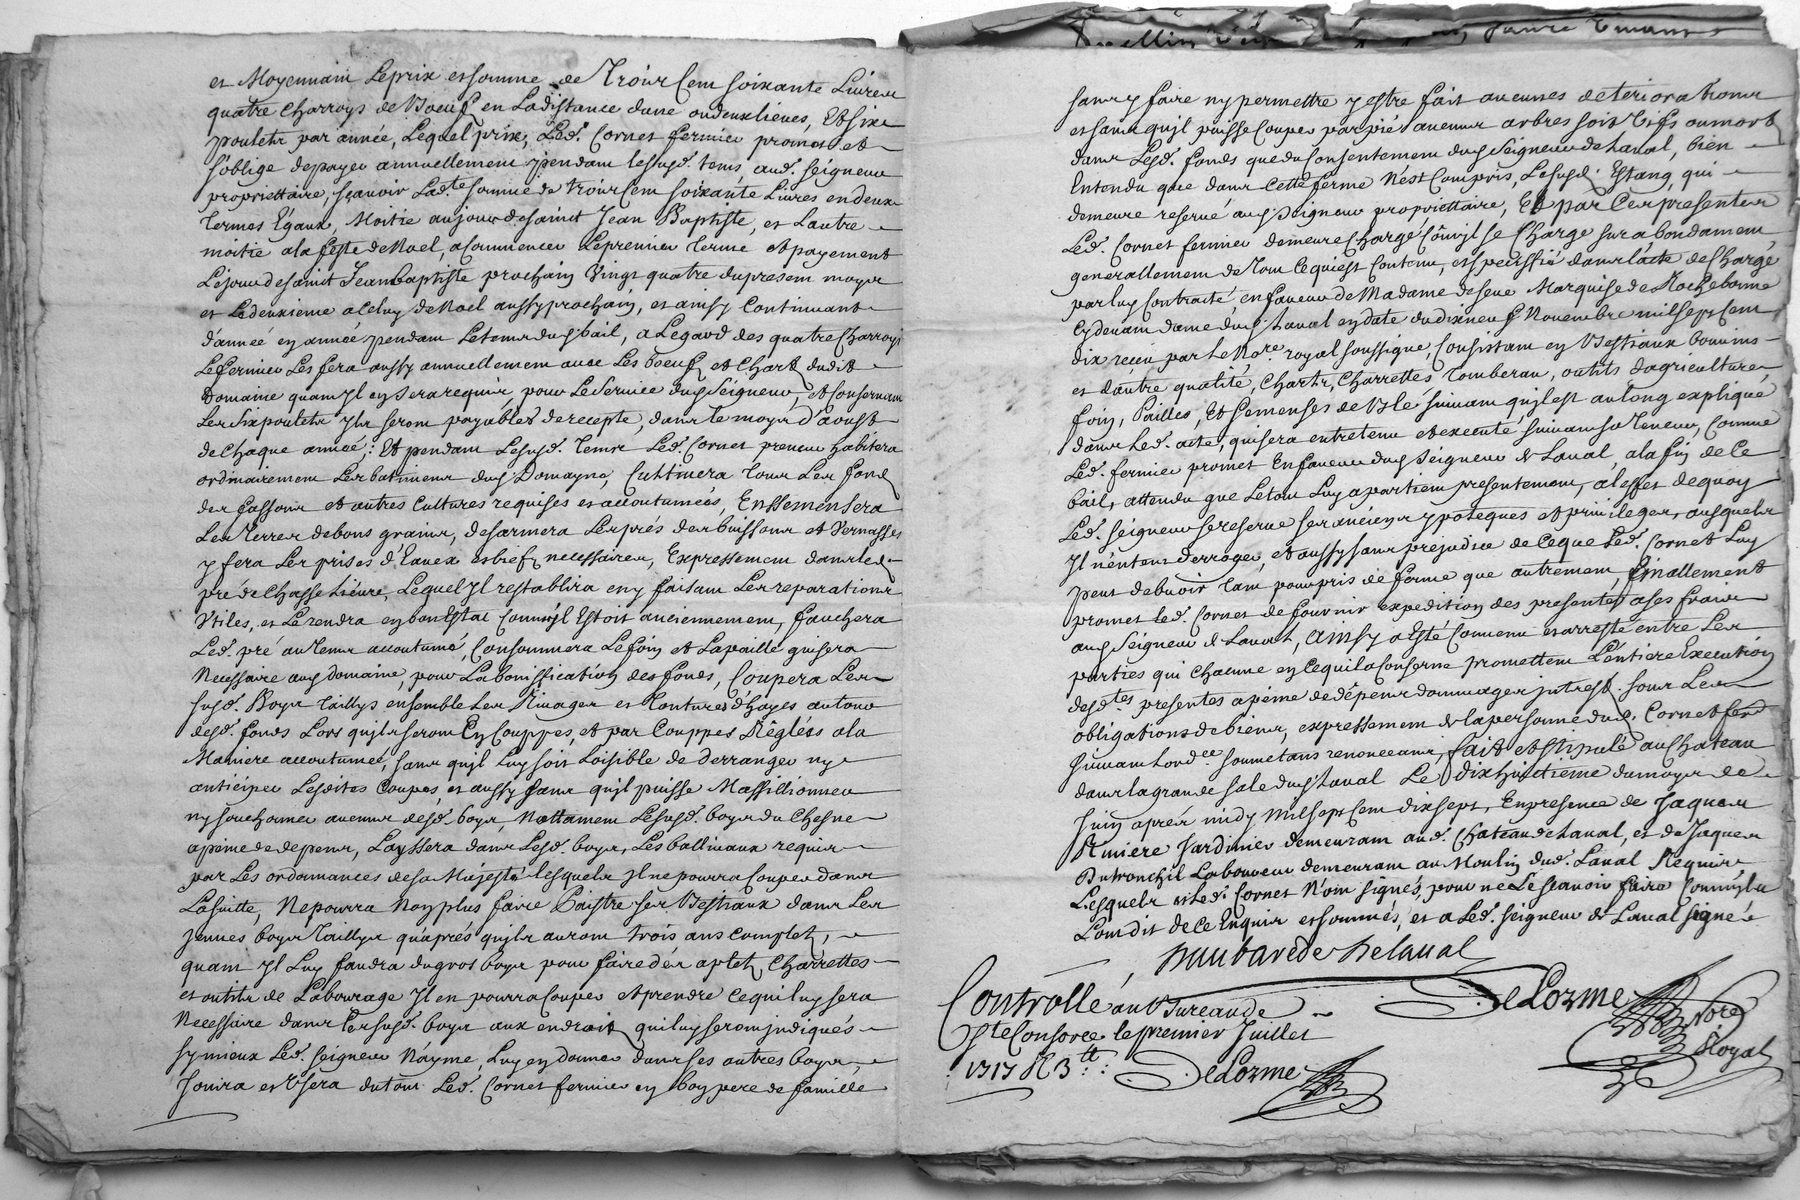 et Moyennant Le prix et somme de Trois Cent soixante Livres
quatre Charroys de Boeufs en Ladistance dune ou deux lieues, Et six
poulets par année, Lequel prix, Led. Cornet fermier promet et
s'oblige de payer annuellement pendant lesusd. tems, aud. seigneur
propriettaire, sçavoir Ladte somme de trois Cent soixante Livres en deux
Termes Égaux, Moitié au jour de saint Jean Baptiste, et Lautre
moitié a la feste de Noel, a Commencer Le premier Terme et payement
Le jour de saint Jean baptiste prochain vingt quatre du present moys
et Le deuxieme a Celuy de Noel aussy prochain, et ainsy Continuant
d'année en année pendant Letems dud. bail, a Legard des quatre Charroys
Le fermier Les fera aussy annuellement avec Les boeufs et Chart dudit
Domaine quant Il en sera requis, pour Le Service dud. Seigneur, et Consernant
Les six poulets Ils seront payables de recepte, dans le moys d'aoust
de Chaque année: Et pendant Lesusd. tems Led. Cornet preneur habitera
ordinairement Les batimens dud. Domayne, Cultivera tous Les fonds
des fassons et autres Cultures requises et accoutumées, Enssemensera
Les Terres de bons grains, desarmera Les prés des buissons et vernasses
y fera Les prises d'Eaux et biefs necessaires, Expressement dans led.
pré de Chasse Lièvre, Lequel Il restablira en y faisant Les reparations
Vtiles, et Le rendra en bon Estat Comme Il Estoit anciennement, fauchera
Led. pré au tems accoutumé, Consommera Le foin et Lapaille qui sera
Necessaire aud. domaine, pour La bonissification des fonds, Coupera Les
susd. Boys Taillys ensemble Les Rivages et Tontures d'hayes autour
desd. fonds Lors qu'ils seront En Couppes, et par Couppes Réglées a la
Maniere accoutumée, sans qu'il Luy soit Loisible de derranger ny
anticiper Lesdites Coupes, et aussy sans qu'il puisse Massillionner
ny souchonner aucuns desd. boys, Nottament Lesusd. boys du Chesne
a peine de depens, Layssera dans Lesd. boys, Les ballivaux requis
par Les ordonnances de sa Majesté lesquels Il ne pourra Couper dans
La suitte, Ne pourra Non plus faire Paistre ses Bestiaux dans Les
jeunes boys Taillys qu'aprés qu'ils auront trois ans Complets,
quant Il Luy faudra du gros boys pour faire des aplets Charrettes
et outils de Labourage Il en pourra Couper et prendre Ce qui luy sera
Necessaire dans Lesusd. boys aux endroits qui luy seront indiqués
sy mieux Led. seigneur N'ayme, Luy en donner dans ses autres boys,
Jouira et Usera du tout Led. Cornet fermier en bon pere de famille
sans y faire ny permettre y estre fait aucunes deteriorations
et sans qu'il puisse Couper par pié aucuns arbres soit vifs ou morts
dans Lesd. fonds que du Consentement dud. Seigneur de Laval, bien
Entendu que dans Cette ferme N'est Compris, Lesusd. Estang, qui
demeure reservé aud. Seigneur propriettaire, Et par Ces presentes
Led. Cornet fermier demeure Chargé Comme Il se Charge surabondament
generallement de tout Ce qui est Contenu, et speciffié dans lacte de Charge
par luy Contracté en faveur de Madame de seve Marquise de Rochebonne
Cy devant dame dud. Laval en date du dix neuf Novembre mil sept Cent
dix receu par Le Nore. royal soussigné, Consistant en Bestiaux bovins
et dautre qualité, Charts, Charrettes Tombereau, outils d'agriculture
foin, Pailles, Et Semenses de Blé suivant qu'il est au long expliqué
dans Led. acte, qui sera entretenu et executé suivant sa Teneur, Comme
Led. fermier promet En faveur dud. Seigneur de Laval, a la fin de Ce
bail, attendu que Le tout Luy apartient presentement, a l'effet de quoy
Led. seigneur se reserve ses anciens ypoteques et privileges, ausquels
Il n'entend derroger, et aussy sans prejudice de Ce que Led. Cornet Luy
peut debvoir Tant pour pris de ferme que autrement, finallement
promet led. Cornet de fournir expedition des presentes a ses frais
aud. Seigneur de Laval, Ainsy a Esté Convenu et arresté entre Les
parties qui Chacune en Ce qui la Conserne promettent L'entiere Execution
desdtes presentes a peine de dépens dommages intrest. sous Les
obligations de biens, expressement de la personne dud. Cornet fer
suivant Lordce soumetans renonceans, fait et stipulé au Chateau
dans la grande sale dud. Laval Le dix huictieme du moys de
Juin aprés midy Mil sept Cent dix sept, En presence de Jaques
Riviere Jardinier demeurant aud. Chateau de Laval, et de Jaques
Dutronchil Laboureur demeurant au Moulin dud. Laval Requis
Lesquels et Led. Cornet N'ont signés, pour ne Le scavoir faire Comme Ils
L'ont dit de Ce Enquis et sommés, et a Led. seigneur de Laval signé
Delaval
DeLorme
Nore
Royal
Controllé au Bureau de
Ste Consorce le premier Juillet
1717 R 3 tt
DeLorme